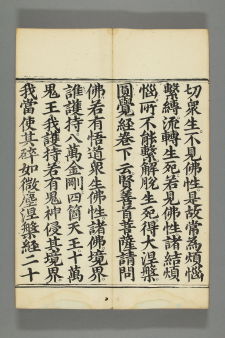 切衆生不見佛性是故常為煩惱
繫縛流轉生死若見佛性諸結煩
惱所不能繫解脫生死得大涅槃
圓覺經卷下云賢善首菩薩請問
佛若有悟道衆生佛性諸佛境界
誰護持八萬金剛四箇天王十萬
鬼王我護持若有鬼神侵其境界
我當使其碎如微塵涅槃經二十